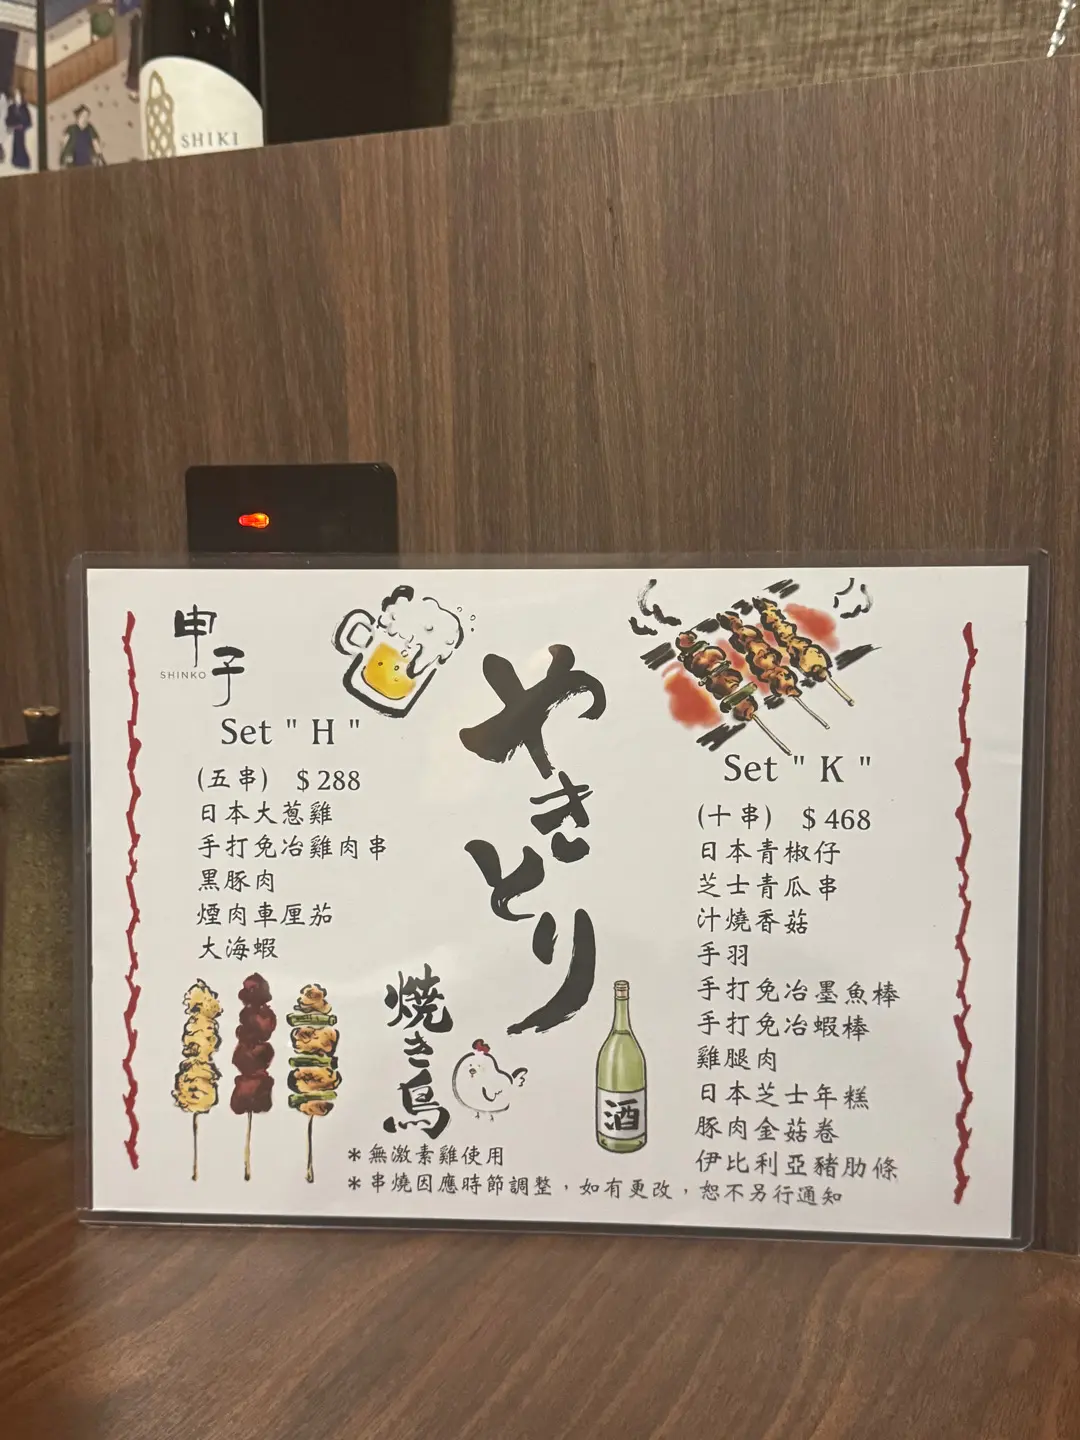 SHIKI
申子
SHINKO
Set " H "
(五串) $288
日本大蔥雞
手打免冶雞肉串
黑豚肉
煙肉車厘茄
大海蝦
やきとり
焼き鳥
酒
Set " K "
(十串) $468
日本青椒仔
芝士青瓜串
汁燒香菇
手羽
手打免冶墨魚棒
手打免冶蝦棒
雞腿肉
日本芝士年糕
豚肉金菇卷
伊比利亞豬肋條
*無激素雞使用
*串燒因應時節調整,如有更改,恕不另行通知